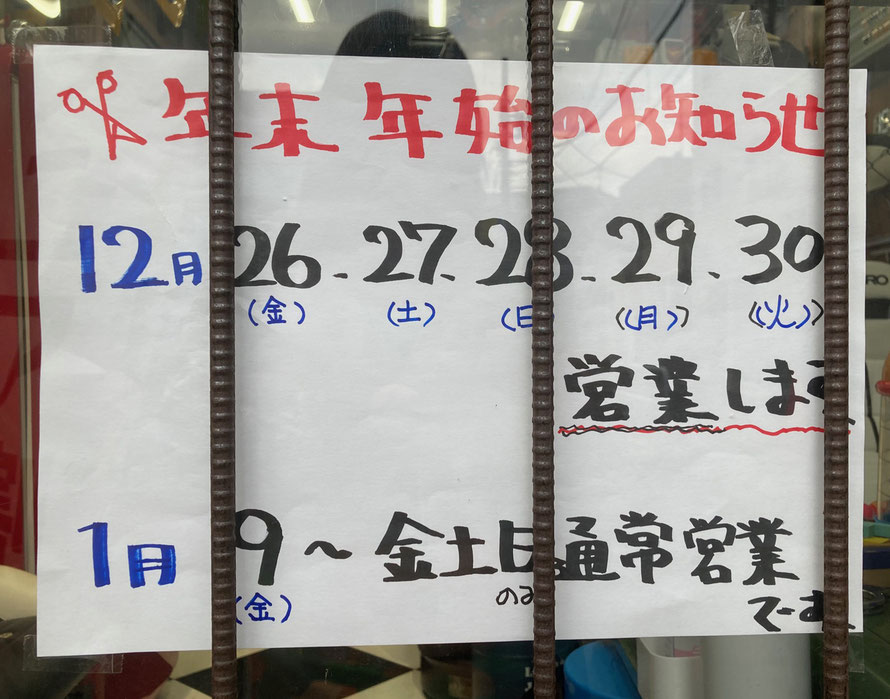 年末年始のお知らせ
12月 26 - 27、28 - 29、30
(金) (土) (日) (月) (火)
営業します
1月 9〜金土日通常営業
(金) のみ でーす